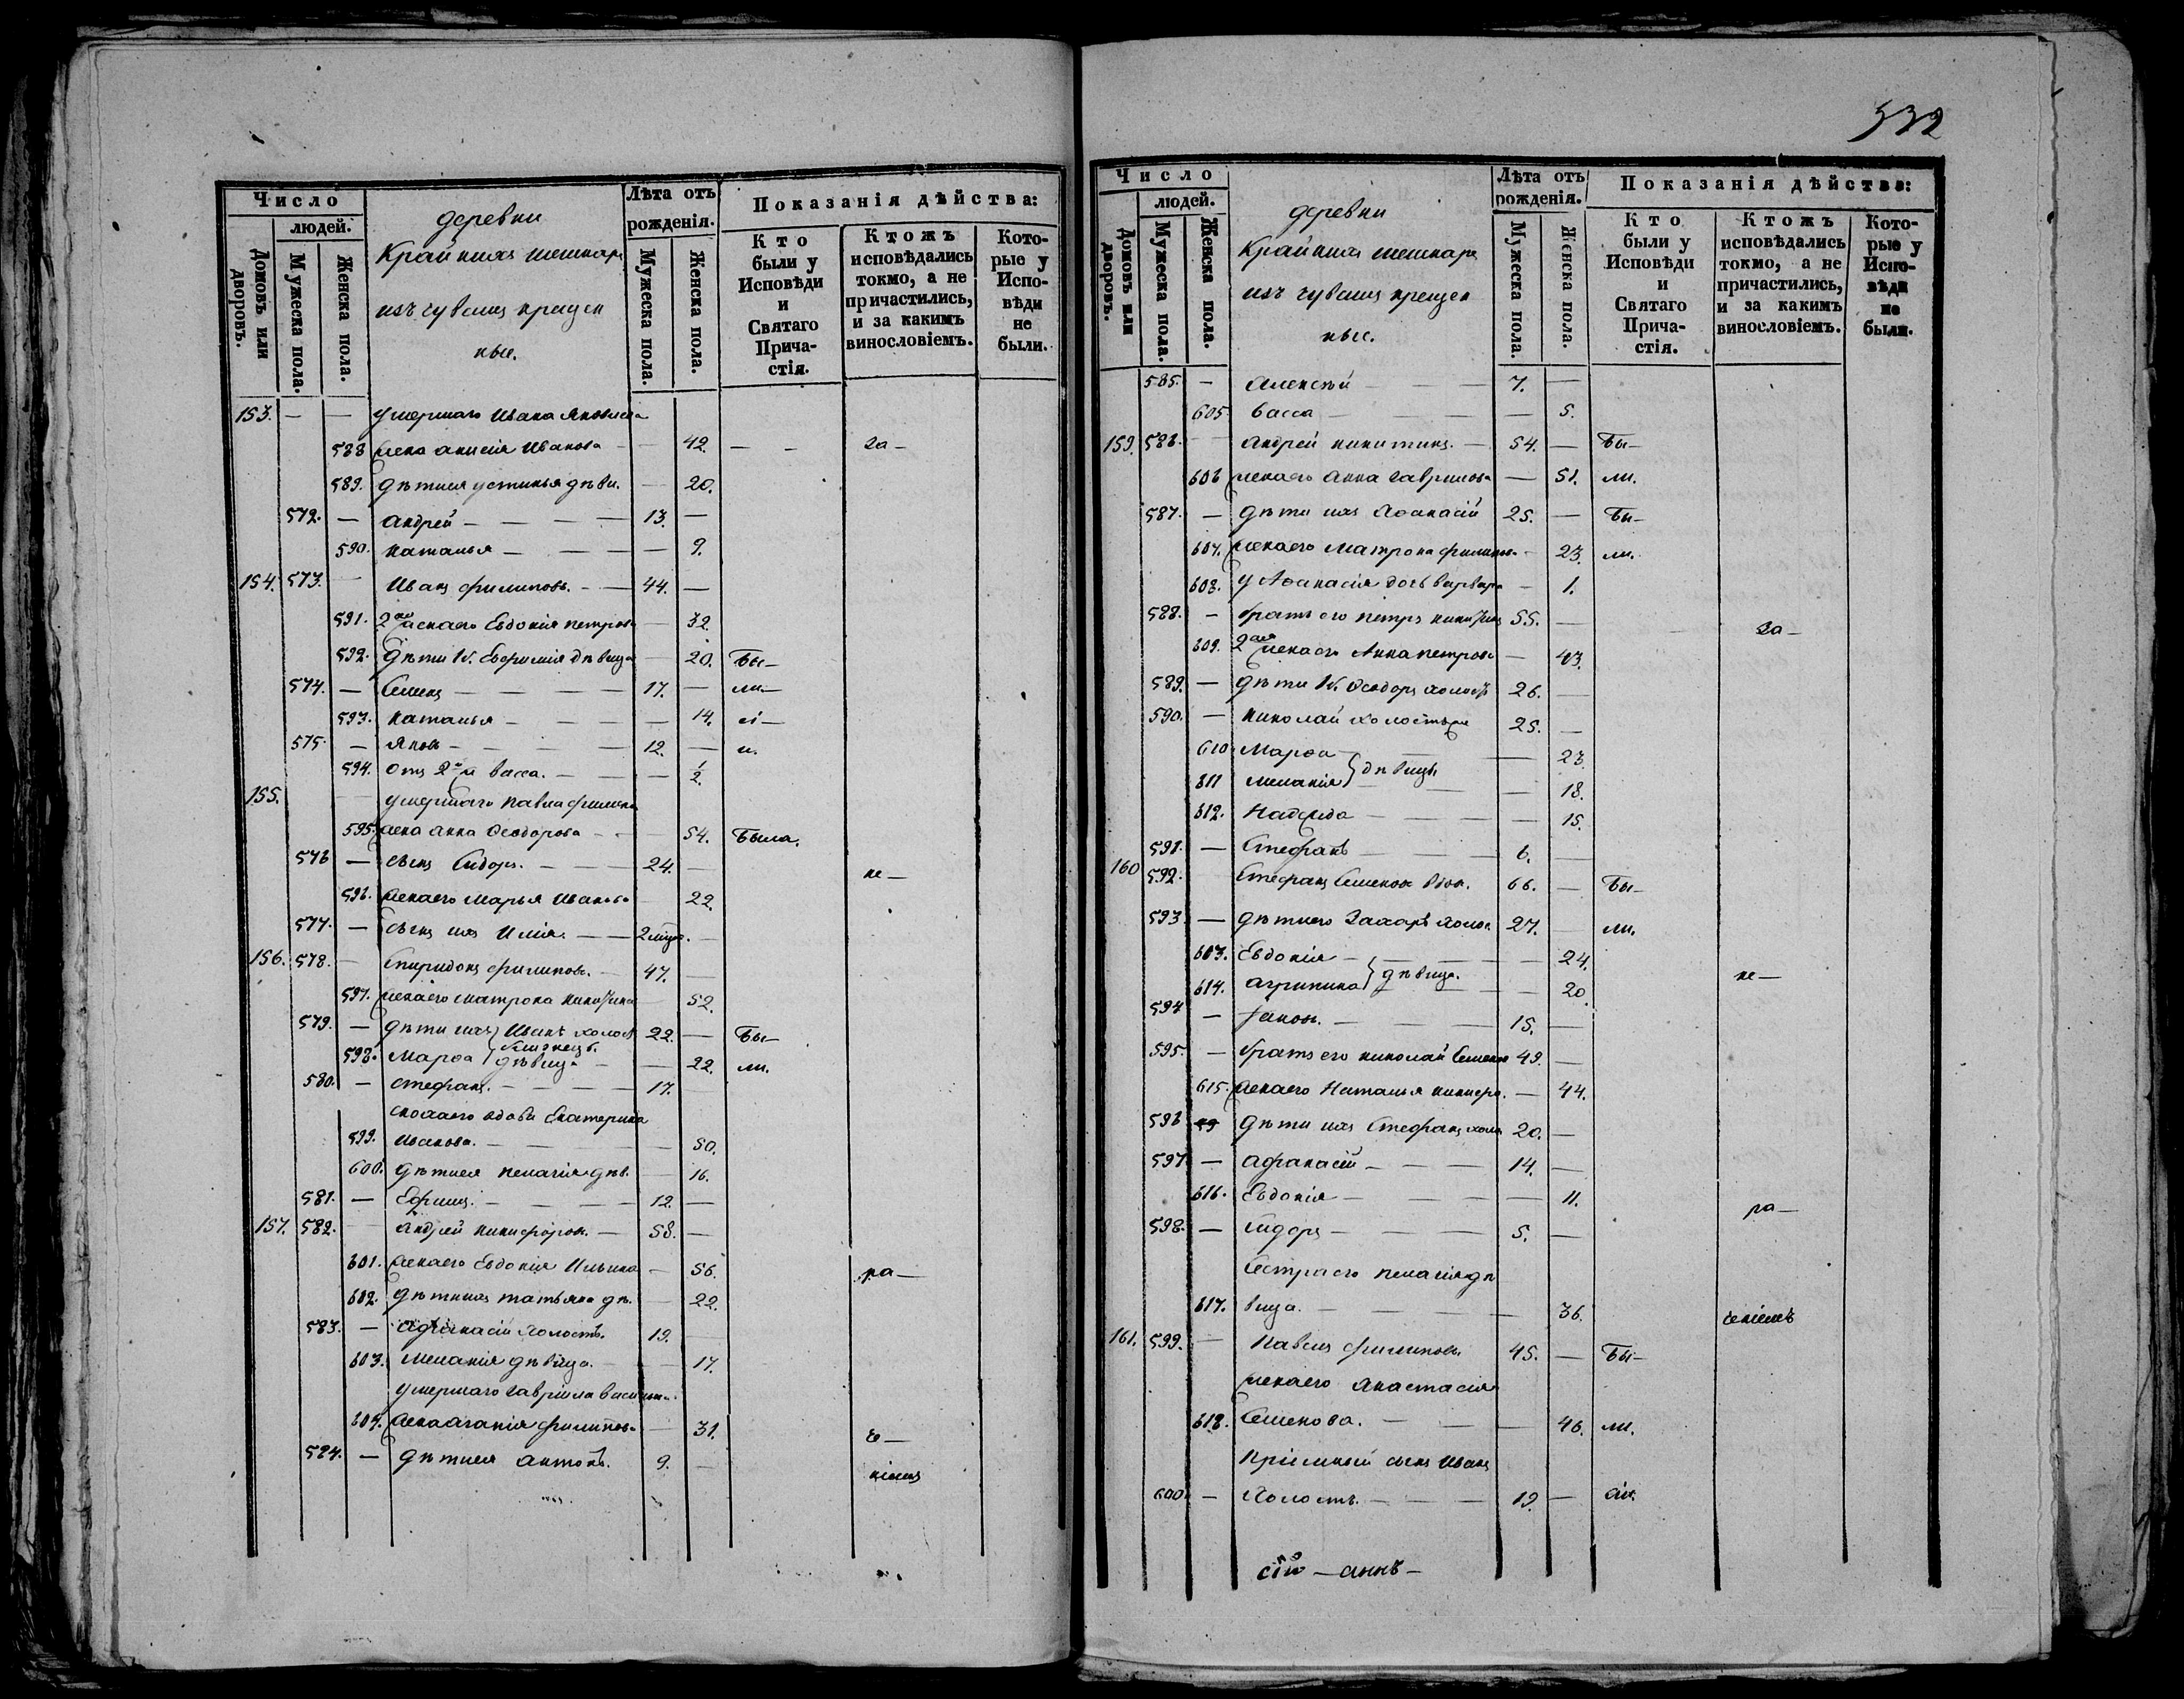 532
Число
людей.
Домовъ или дворовъ.
Мужеска пола.
Женска пола.
деревни
Крайнихъ шешкаръ
изъ чувашъ крещен
ные.
Лѣта отъ рожденія.
Мужеска пола.
Женска пола.
Показанія дѣйства:
Кто были у Исповѣди и Святаго Причастія.
Ктожъ исповѣдались токмо, а не причастились, и за какимъ винословіемъ.
Которые у Исповѣди не были.
153. — — умершаго Ивана Яковлева
588 жена анисія Иванова — 42. — — За—
589. дѣти ея устинья дѣви. — 20.
572. — андрей — 13. —
590. наталья — 9.
154. 573. — Иванъ филиповъ. — 44. —
591. 2ая жена его Евдокія петрова — 32.
592. дѣти 1й. Евфимія дѣвица — 20. Бы—
574. — Семенъ — 17. — ли—
593. наталья — 14.
575. — Яковъ — 12. —
594. отъ 2й васса. — 1/2
155. — умершаго павла филипа
595. жена анна Ѳеодорова — 54. Была.
576 — сынъ Сидоръ. — 24. — не—
596. жена его Марья Иванова — 22.
577. — сынъ ихъ Илія. — 2 —
156. 578. — Спиридонъ филиповъ. — 47. —
597. жена его матрона никитина — 52.
579. — дѣти ихъ Иванъ холостъ 22. — Бы—
близнецы.
598. Марѳа дѣвица — 22. ли.
580. — стефанъ. — 17.
сноха его вдова Екатерина
599. Иванова. — 50.
600. дѣти ея пелагія дѣв. — 16.
581. — Ефимъ. — 12. —
157. 582. — Андрей никифоровъ. — 58. —
601. жена его Евдокія Ильина — 56. ра—
602. дѣти ихъ татьяна дѣ. — 22.
583. — Афанасій холостъ. 19. —
603. Меланія дѣвица. — 17.
умершаго гавріила василье
604. жена аганія филипова — 31. че—
584. — дѣти ея антонъ. 9. — ніемъ
Число
людей.
Домовъ или дворовъ.
Мужеска пола.
Женска пола.
деревни
Крайнихъ шешкаръ
изъ чувашъ крещен
ные.
Лѣта отъ рожденія.
Мужеска пола.
Женска пола.
Показанія дѣйства:
Кто были у Исповѣди и Святаго Причастія.
Ктожъ исповѣдались токмо, а не причастились, и за какимъ винословіемъ.
Которые у Исповѣди не были.
585. — алексѣй — 7. —
605 васса — 5.
159. 586. — андрей никитинъ. — 54. — Бы—
606 жена его анна гаврилова — 51. ли.
587. — дѣти ихъ Аѳанасій 25. — Бы—
607. жена его Матрона филипова — 23. ли.
608. у Аѳанасія дочь варвара — 1.
588. — братъ его петръ никитинъ 55. — За—
609. 2ая жена его Анна петрова — 43.
589. — дѣти 1й. Ѳеодоръ холостъ 26. —
590. — николай холостъ 25. —
610 Марѳа — 23.
дѣвицы
611 меланія — 18.
612. Надежда — 15.
591. — Стефанъ 6. —
160 592. Стефанъ Семеновъ вдов. 66. — Бы—
593. — дѣти его Захаръ холос. 27. — ли.
613. Евдокія — 24. не—
дѣвицы.
614. агрипина — 20.
594 — Јаковъ. — 15. —
595. — братъ его николай Семенов 49. —
615. жена его Наталья никифо. — 44.
596 — дѣти ихъ Стефанъ холо 20. —
597 — афанасій — 14. —
616. Евдокія — 11. ра—
598. — сидоръ — 5. —
Сестра его пелагія дѣ
617. вица. — 36. ченіемъ
161. 599. — Павелъ филиповъ. 45. — Бы—
жена его анастасія
618. Семенова. — 46. ли.
Пріемный сынъ Иванъ
600 — Холостъ. — 19. —